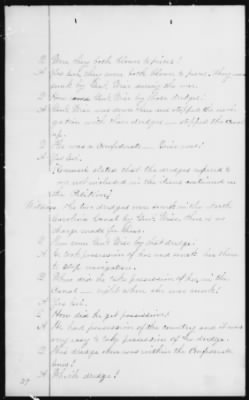 Q Were they both blown to pieces?
A Yes sir, they were both blown to pieces. They were
sunk by Gen'l. Wise during the war.
Q How Gen'l Wise by those dredges?
A Gen'l Wise was down there and stopped the navi-
gation with these dredges — stopped the canal
up.
Q He was a Confederate — Genl?
A Yes sir.
(Counsel stated that the dredges referred to
are not included in the items contained in
the Petition)
Witness The two dredges were sunk in the North
Carolina Canal by Gen'l. Wise. There is no
charge made for them.
Q How come Gen'l Wise by that dredge?
A He took possession of her and sunk her there
to stop navigation.
Q Where did he take possession of her, in the
Canal — right where she was sunk?
A Yes sir.
Q How did he get possession?
A He had possession of the country and it was
very easy to take possession of the dredge.
Q The dredge then was within the Confederate
lines?
A Which dredge?
27